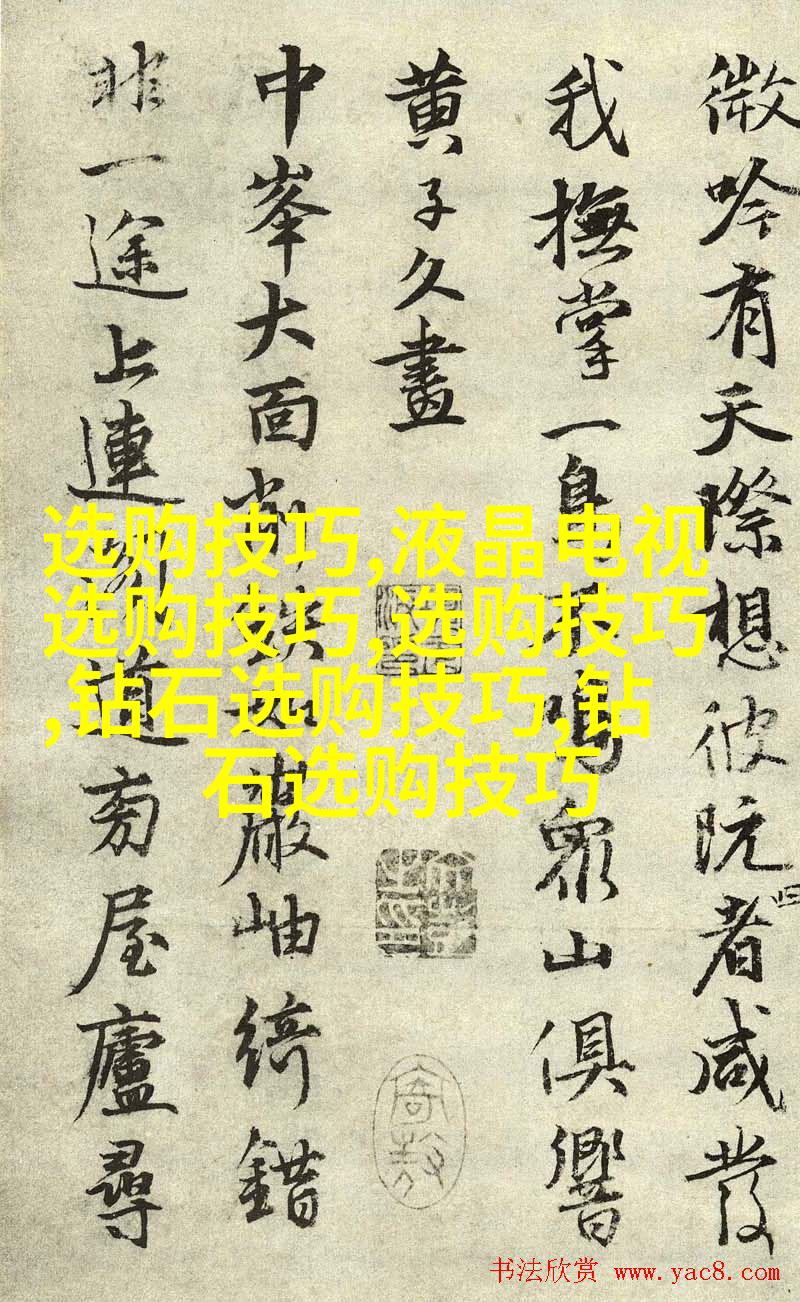 微吟有天際想彼阮者咸發
我撫掌一身 鳴眾山俱響
黄子久畫
中峯大面 鐵 巖岫綺錯
非一途上連 道旁屋廬尋
选购技巧,液晶电视
选购技巧,选购技巧
,钻石选购技巧,钻
石选购技巧
书法欣赏 www.yac8.com